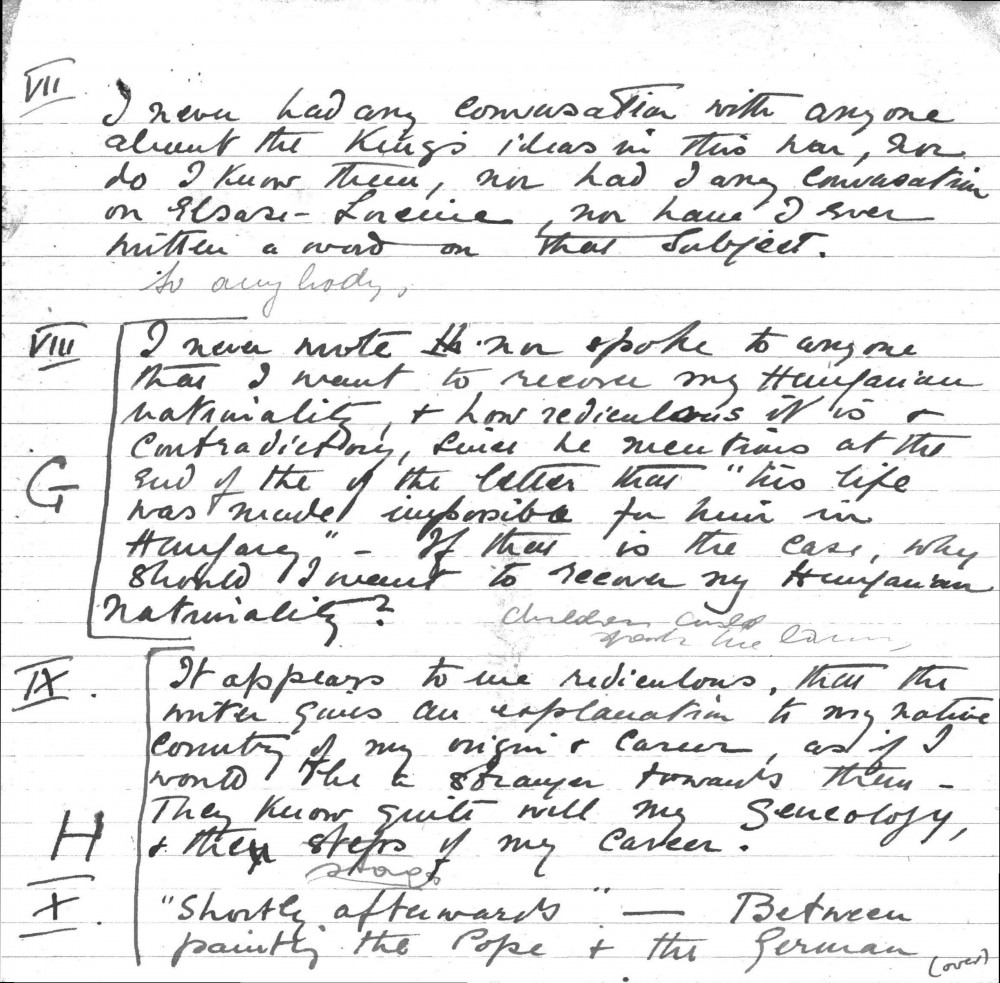 VII
I never had any conversation with anyone
about the King's ideas in this war, nor
do I know them, nor had I any conversation
on Elsass-Loraine, nor have I ever
written a word on that subject.
to anybody.
VIII
I never wrote nor spoke to anyone
that I want to recover my Hungarian
nationality, & how rediculous it is &
contradictory, since he mentions at the
G
end of the of the letter that "his life
was made impossible for him in
Hungary," - If that is the case, why
should I want to recover my Hungarian
nationality?
children could
speak the
IX.
It appears to me rediculous, that the
writer gives an explanation to my native
country of my origin & career, as if I
would be a stranger towards them -
They know quite well my Geneology,
H
& the steps of my career.
stages
X.
"Shortly afterwards" — Between
painting the Pope & the German
(over)